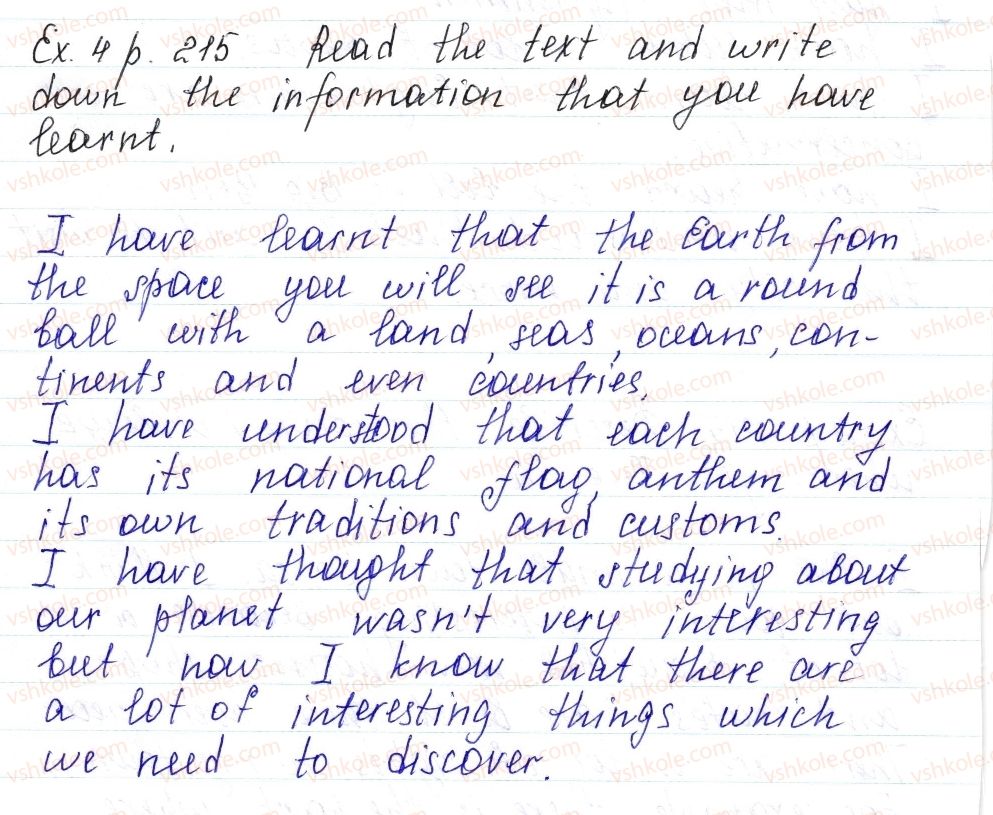 Ex. 4 p. 215 Read the text and write
down the information that you have
learnt.
I have learnt that the Earth from
the space you will see it is a round
ball with a land, seas, oceans, con-
tinents and even countries.
I have understood that each country
has its national flag, anthem and
its own traditions and customs.
I have thought that studying about
our planet wasn't very interesting
but now I know that there are
a lot of interesting things which
we need to discover.